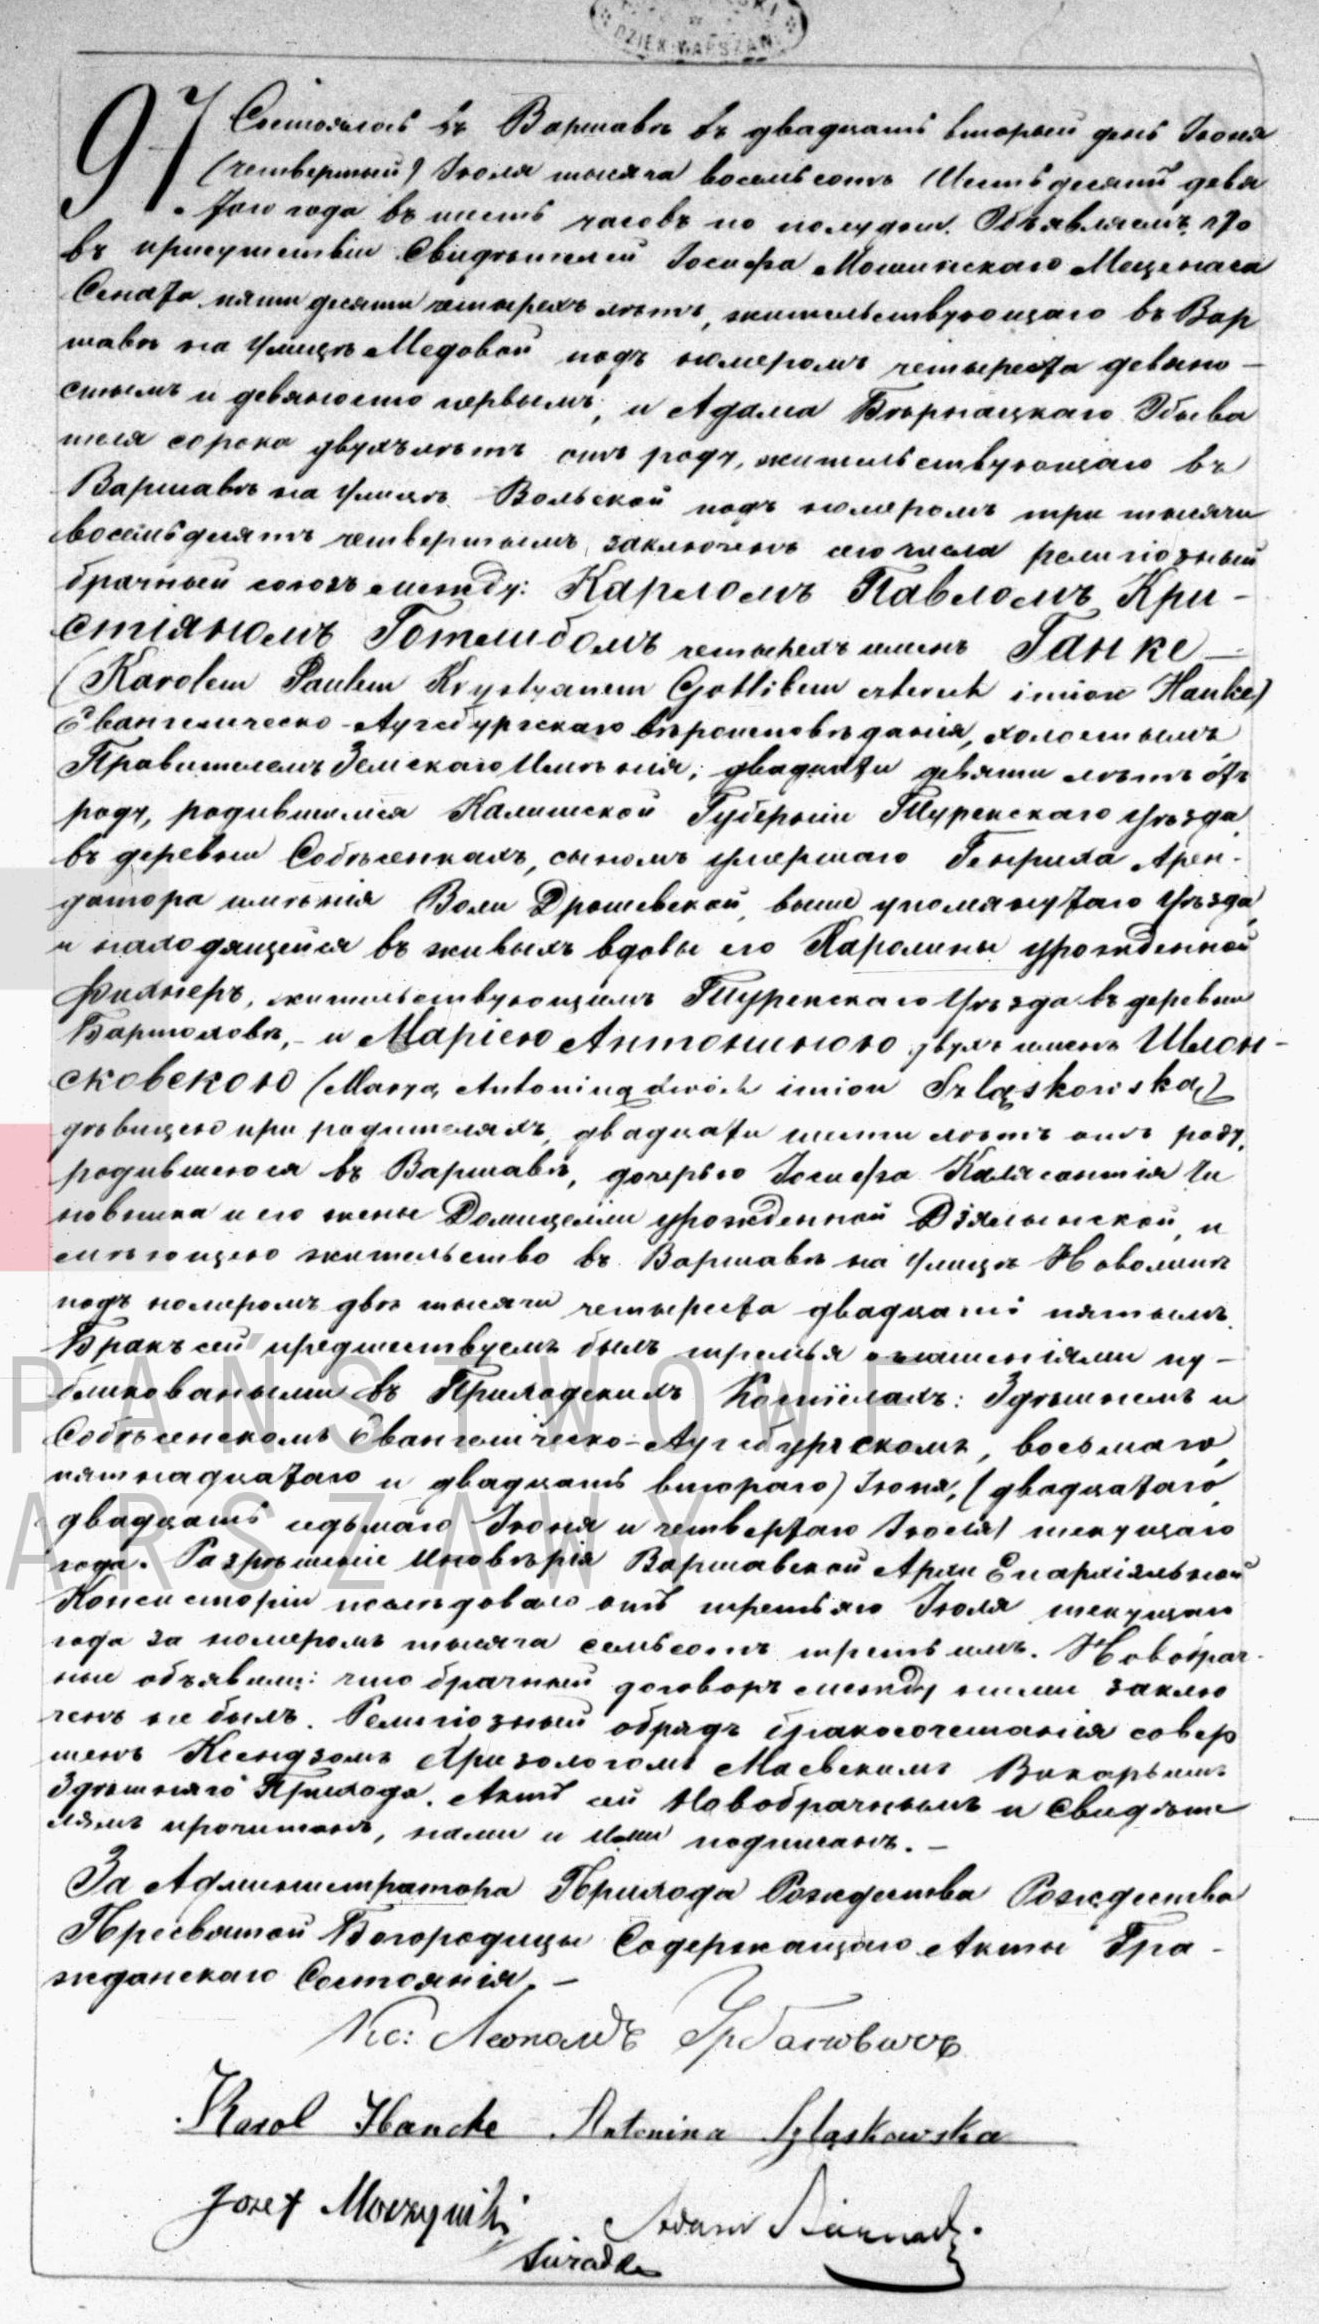 DZIEK·WARSZAW
97.
Состоялось въ Варшавѣ въ двадцать вторый день Іюня
(четвертый) Іюля тысяча восемьсотъ шестьдесятъ девя
таго года въ шесть часовъ по полудни. Объявляемъ, что
въ присутствіи Свидѣтелей Іосифа Мошинскаго Меценаса
Сената пятидесяти четырехъ лѣтъ, жительствующаго въ Вар
шавѣ на улицѣ Медовой подъ номеромъ четыреста девяно-
стымъ и девяносто первымъ, и Адама Бѣрнацкаго Обыва
теля сорока двухъ лѣтъ отъ роду, жительствующаго въ
Варшавѣ на улицѣ Вольской подъ номеромъ три тысячи
восемьдесятъ четвертымъ, заключенъ сего числа религіозный
брачный союзъ между: Карломъ Павломъ Кри-
стіяномъ Готлибомъ четырехъ именъ Ганке
(Karolem Paulem Krystyanem Gottlibem czterech imion Hanke)
Евангелическо-Аугсбургскаго вѣроисповѣданія, холостымъ,
Правителемъ Земскаго Имѣнія, двадцати девяти лѣтъ отъ
роду, родившимся Калишской Губерніи Турекскаго уѣзда
въ деревни Собѣсенкахъ, сыномъ умершаго Генриха Арен-
датора имѣнія Воли Дрошевской, выше упомянутаго уѣзда,
и находящейся въ живыхъ вдовы его Каролины урожденной
Фихнеръ, жительствующимъ Турекскаго уѣзда въ деревни
Бартоловѣ, - и Маріею Антониною двухъ именъ Шлон-
сковскою (Maryą Antoniną dwóch imion Szląskowską)
дѣвицею при родителяхъ, двадцати шести лѣтъ отъ роду,
родившеюся въ Варшавѣ, дочерью Іосифа Калясантія Чи
новника и его жены Домицеліи урожденной Дзялынской, и
мѣющею жительство въ Варшавѣ на улицѣ Новолипѣ
подъ номеромъ двѣ тысячи четыреста двадцать пятымъ.
Бракъ сей предшествуемъ былъ тремья оглашеніями пу-
бликованными въ Приходскихъ Костёлахъ: Здѣшнемъ и
Собѣсенскомъ Евангелическо-Аугсбургскомъ, восьмаго,
пятнадцатаго и двадцать втораго) Іюня, (двадцатаго,
двадцать седьмаго Іюня и четвертаго Іюля) текущаго
года. Разрѣшеніе Иновѣрія Варшавской Архи Епархіяльной
Консисторіи послѣдовало отъ третьяго Іюля текущаго
года за номеромъ тысяча семьсотъ третьимъ. Новобрач-
ные объявили: что брачный договоръ между ними заклю
ченъ не былъ. Религіозный обрядъ бракосочетанія совер
шенъ Ксендзомъ Хризологомъ Маевскимъ Викарьемъ
Здѣшняго Прихода. Актъ сей Новобрачнымъ и Свидѣте
лямъ прочитанъ, нами и ими подписанъ. -
За Администратора Прихода Рождества Рождества
Пресвятой Богородицы Содержащаго Акты Гра-
жданскаго Состоянія. -
Кс: Леопольдъ Урбановичъ
Karol Hancke Antonina Szląskowska
Józef Moszyński Adam Biernacki
PAŃSTWOWE
ARSZAWY